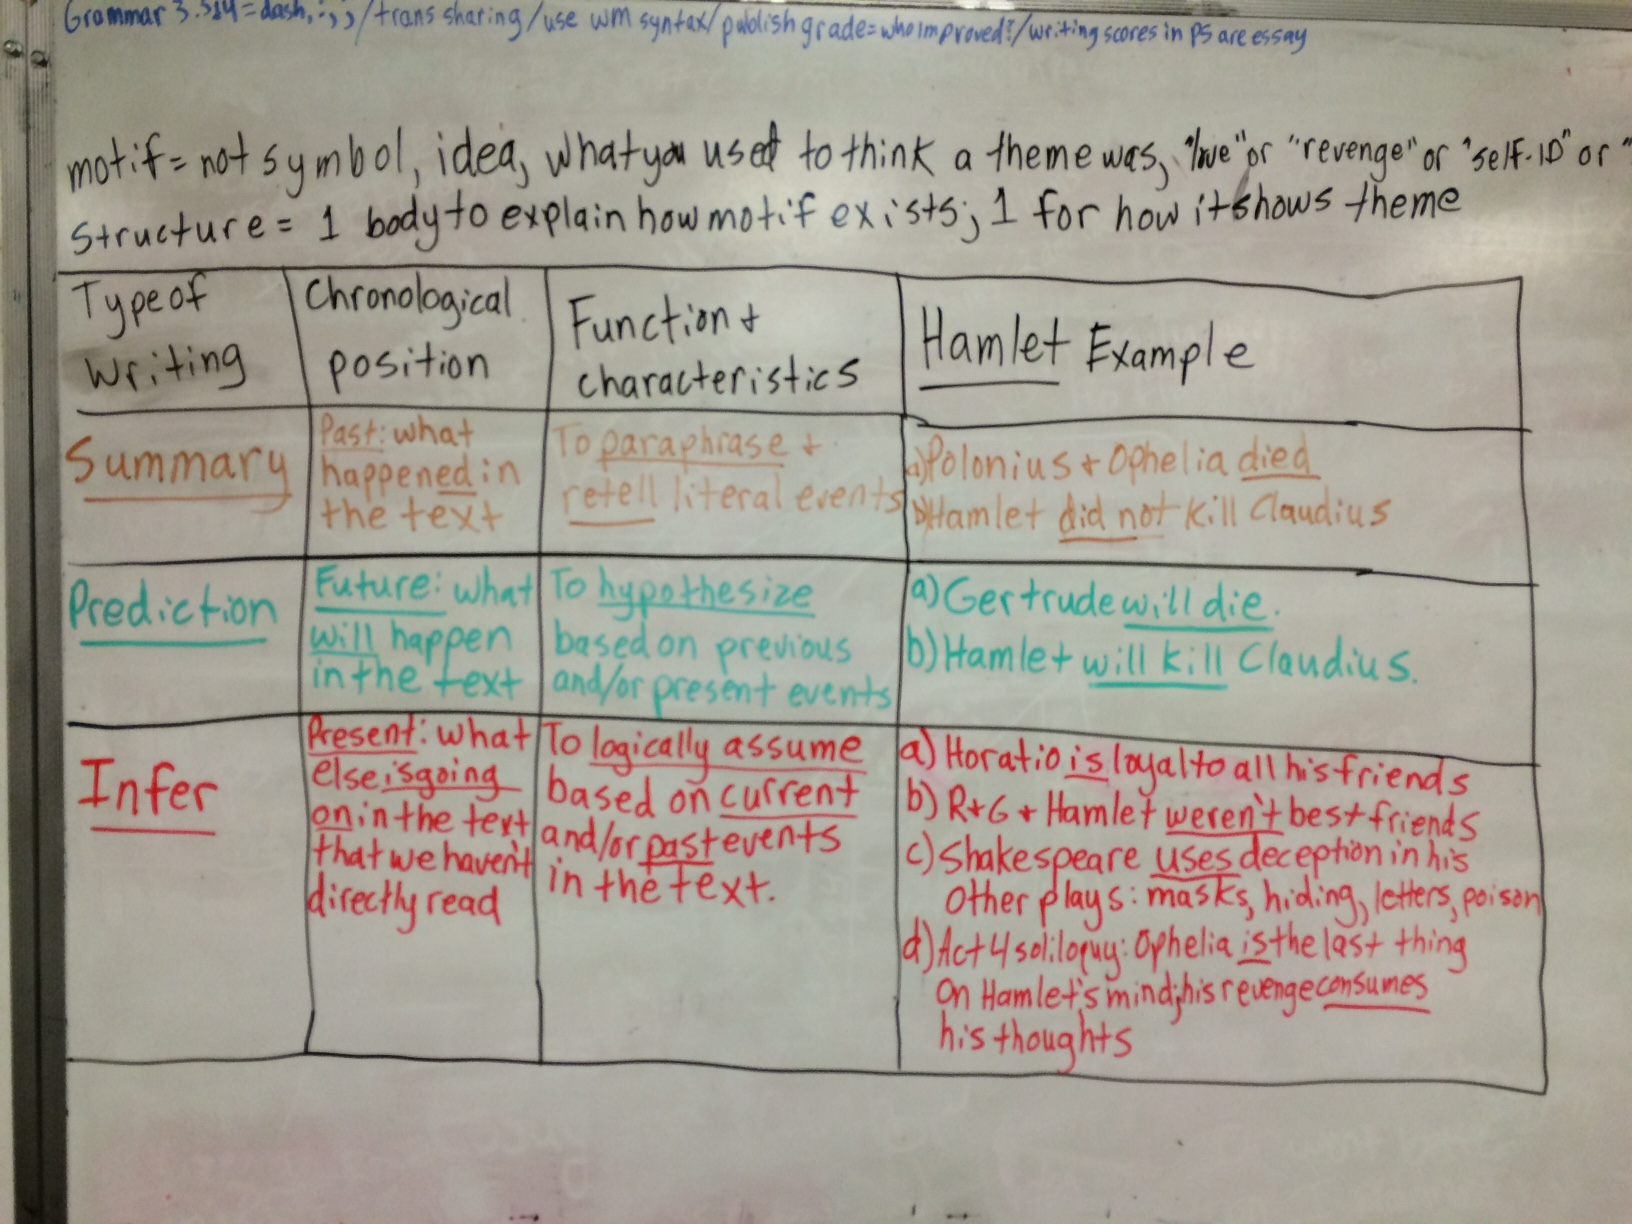 Grammar 3.5&4=dash, :, ;, /trans sharing/use WM syntax/publish grade=who improved?/writing scores in PS are essay
motif= not symbol, idea, what you used to think a theme was, "love" or "revenge" or "self-ID" or "
Structure = 1 body to explain how motif exists; 1 for how it shows theme
Type of
Writing
Chronological
position
Function +
characteristics
Hamlet Example
Summary
Past: what
happened in
the text
To paraphrase +
retell literal events
a)Polonius + Ophelia died
b)Hamlet did not kill Claudius
Prediction
Future: what
will happen
in the text
To hypothesize
based on previous
and/or present events
a)Gertrude will die.
b)Hamlet will kill Claudius.
Infer
Present: what
else is going
on in the text
that we haven't
directly read
To logically assume
based on current
and/or past events
in the text.
a) Horatio is loyal to all his friends
b) R+G + Hamlet weren't best friends
c) Shakespeare uses deception in his
other plays: masks, hiding, letters, poison
d) Act 4 soliloquy: Ophelia is the last thing
on Hamlet's mind; his revenge consumes
his thoughts